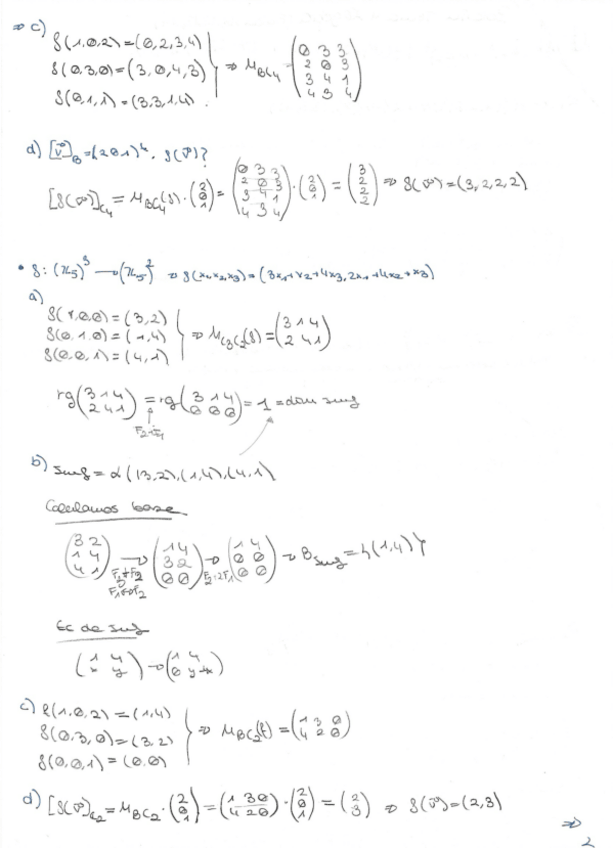 ⇒ c)
f(1,0,2) = (0,2,3,4)
f(0,3,0) = (3,0,4,3)
f(0,1,1) = (3,3,1,4)
⇒ M_{BC_4} = (0 3 3 / 2 0 3 / 3 4 1 / 4 3 4)
d) [v⃗]_B = (2 0 1)^t. f(v⃗)?
[f(v⃗)]_{C_4} = M_{BC_4}(f) · (2 / 0 / 1) = (0 3 3 / 2 0 3 / 3 4 1 / 4 3 4) · (2 / 0 / 1) = (3 / 2 / 2 / 2) ⇒ f(v⃗) = (3,2,2,2)
• f: (ℤ_5)^3 → (ℤ_5)^2 ⇒ f(x_1,x_2,x_3) = (3x_1+x_2+4x_3, 2x_1+4x_2+x_3)
a)
f(1,0,0) = (3,2)
f(0,1,0) = (1,4)
f(0,0,1) = (4,1)
⇒ M_{C_3C_2}(f) = (3 1 4 / 2 4 1)
rg(3 1 4 / 2 4 1) = rg(3 1 4 / 0 0 0) = 1 = dim Im f
b) Im f = L((3,2),(1,4),(4,1)
Calculamos base
(3 2 / 1 4 / 4 1) → (1 4 / 3 2 / 0 0) → (1 4 / 0 0 / 0 0) → B_{Im f} = {(1,4)}
F_3+F_2
F_1↔F_2
F_2+2F_1
Ec de Im f
(1 4 / x y) → (1 4 / 0 y+x)
c) f(1,0,2) = (1,4)
f(0,3,0) = (3,2)
f(0,0,1) = (0,0)
⇒ M_{BC_2}(f) = (1 3 0 / 4 2 0)
d) [f(v⃗)]_{C_2} = M_{BC_2} · (2 / 0 / 1) = (1 3 0 / 4 2 0) · (2 / 0 / 1) = (2 / 3) ⇒ f(v⃗) = (2,3)
⇒
2